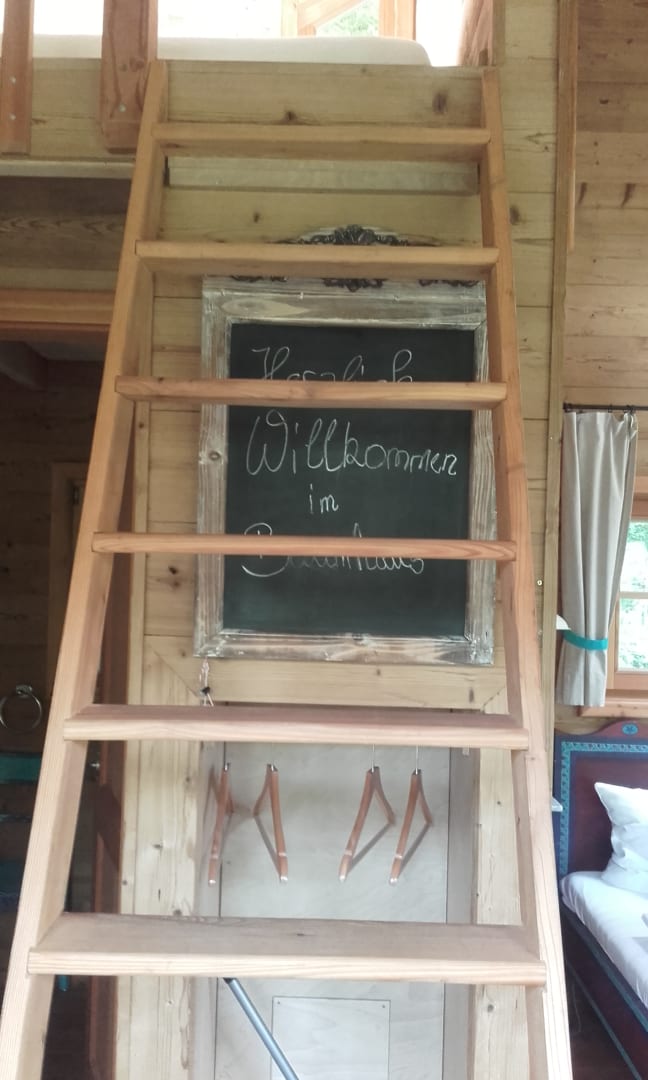 Herzlich
Willkommen
im
Baumhaus